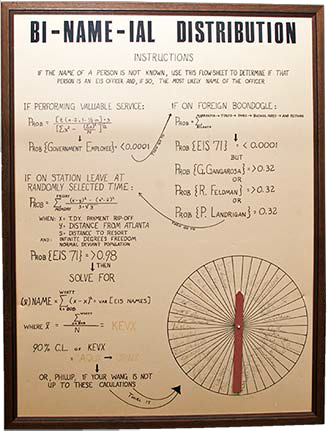 BI-NAME-IAL DISTRIBUTION
INSTRUCTIONS
IF THE NAME OF A PERSON IS NOT KNOWN, USE THIS FLOW SHEET TO DETERMINE IF THAT
PERSON IS AN EIS OFFICER AND, IF SO, THE MOST LIKELY NAME OF THE OFFICER.
IF PERFORMING VALUABLE SERVICE:
PROB =
PROB {GOVERNMENT EMPLOYEE} = < 0.0001
IF ON STATION LEAVE AT
RANDOMLY SELECTED TIME:
PROB =
WHEN: X = T.D.Y. PAYMENT RIP-OFF
Y = DISTANCE FROM ATLANTA
S = DISTANCE TO RESORT
AND: INFINITE DEGREES FREEDOM
NORMAL DEVIANT POPULATION
PROB {EIS 71} = > 0.98
THEN
SOLVE FOR
(X) NAME = Σ (X - X)² + VAR [EIS NAMES]
WHERE X̄ = = KEVX
90% C.L. OF KEVX
OR, PHILLIP, IF YOUR WANG IS NOT
UP TO THESE CACULATIONS
TWIRL IT
IF ON FOREIGN BOONDOGLE:
PROB = Σ
PROB {EIS 71} = < 0.0001
BUT
PROB {G. GANGAROSA} = > 0.32
OR
PROB {R. FELDMAN} = > 0.32
OR
PROB {P. LANDRIGAN} = 0.32